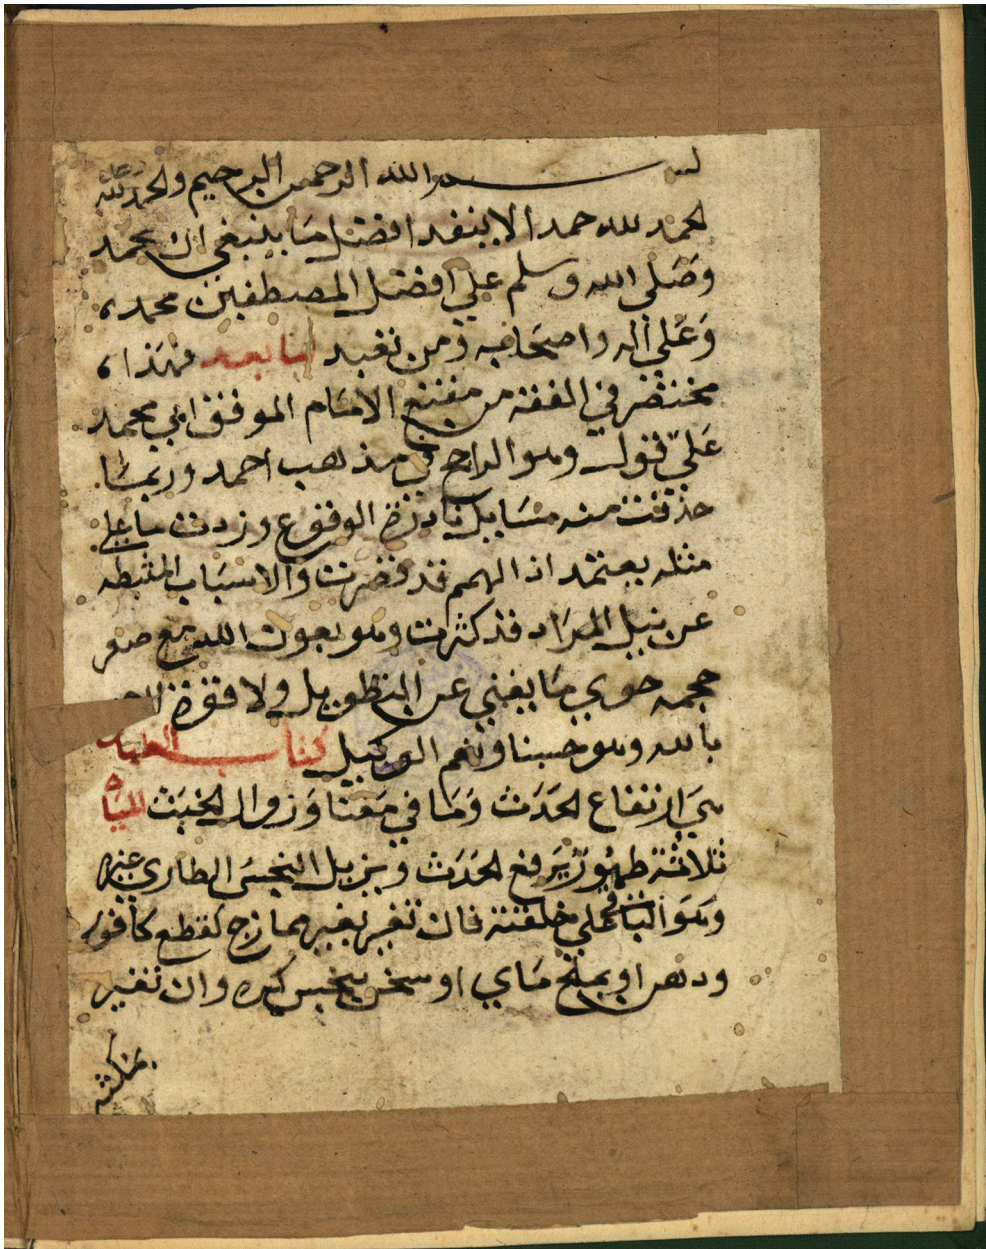 بسم الله الرحمن الرحيم والحمد لله
الحمد لله حمدا لا ينفد افضل ما ينبغي ان يحمد
وصلى الله وسلم علي افضل المصطفين محمد،
وَعَلي اله واصحابه ومن تعبد اما بعد فهذا،
مختصر في الفقه من مقنع الامام الموفق ابي محمد
عَلي قول وهو الراجح في مذهب احمد وربما
حذفت منه مسايل نادرة الوقوع وزدت ما علي
مثله يعتمد اذ الهمم قد قصرت والاسباب المثبطه
عن نيل المراد قد كثرت وهو بعون الله مع صغر
حجمه حوي ما يغني عن التطويل ولا قوة الا
بالله وهو حسبنا ونعم الوكيل كتاب
هيَ ارتفاع الحدَث وَمَا في مَعناه وَزوال الخبَث المياه
ثلاثة طهُورٌ يَرفع الحدَث ويزيل النجسَ الطاري غيره
وهَوَ الباقي علي خلقته فان تغير بغير ممازج كقطع كافور
ودهن او بملح مَاي او سخن بنجس كره وان تغير
بمكثه